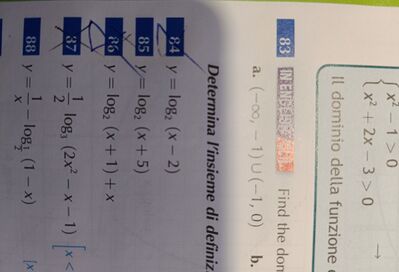 x² - 1 > 0
x² + 2x - 3 > 0 →
Il dominio della funzione
83 IN ENGLISH Find the
a. (-∞, -1) ∪ (-1, 0) b.
Determina l'insieme di
84 y = log₂ (x - 2)
85 y = log₂ (x + 5)
86 y = log₂ (x + 1) + x
87 y = 1/2 log₃ (2x² - x - 1) [x <
88 y = 1/x - log₂ (1 - x) [x